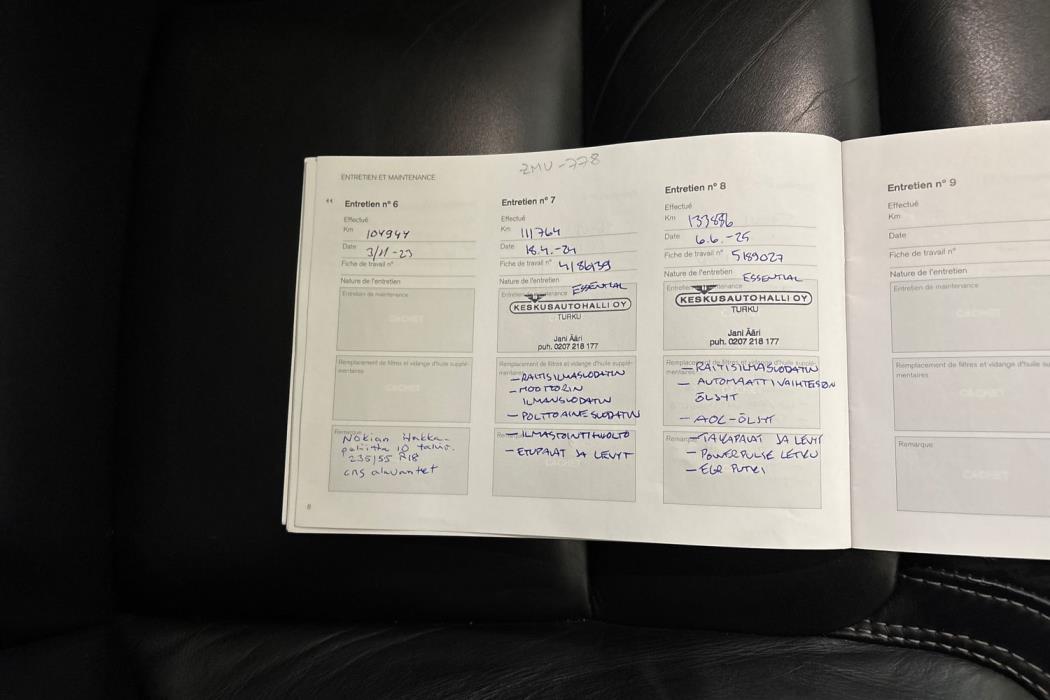 ZMU-778
ENTRETIEN ET MAINTENANCE
Entretien n° 6
Effectué
Km 104944
Date 3/11-23
Fiche de travail n°
Nature de l'entretien
Entretien de maintenance
CACHET
Remplacement de filtres et vidange d'huile supplé-
mentaires
CACHET
Remarque
Nokian Hakka-
peliitta 10 talvir.
235/55 R18
8
Entretien n° 7
Effectué
Km 111764
Date 18.4.-24
Fiche de travail n° 4186939
Nature de l'entretien
ESSENTIAL
KESKUSAUTOHALLI OY
TURKU
Jani Ääri
puh. 0207 218 177
Remplacement de filtres et vidange d'huile supplé-
mentaires
- RAITISILMASUODATIN
- MOOTTORIN
ILMANSUODATIN
- POLTTOAINESUODATIN
- ILMASTOINTIHUOLTO
- ETUPALAT JA LEVYT
Entretien n° 8
Effectué
Km 133886
Date 6.6.-25
Fiche de travail n° 5189027
Nature de l'entretien
ESSENTIAL
KESKUSAUTOHALLI OY
TURKU
Jani Ääri
puh. 0207 218 177
- RAITISILMASUODATIN
- AUTOMAATTIVAIHTEISON
ÖLJYT
- AOC-ÖLJYT
- TAKAPALAT JA LEVYT
- POWERPULSE LETKU
- EGR PUTKI
Entretien n° 9
Effectué
Km
Date
Fiche de travail n°
Nature de l'entretien
Entretien de maintenance
CACHET
Remplacement de filtres et vidange d'huile
mentaires
CACHET
Remarque
CACHET